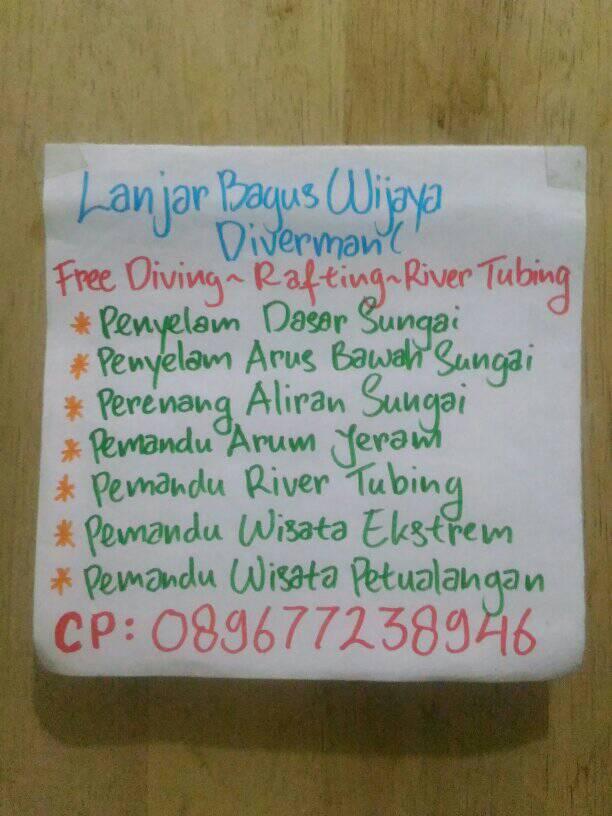 Lanjar Bagus Wijaya
Diverman(
Free Diving~Rafting~River Tubing
* Penyelam Dasar Sungai
* Penyelam Arus Bawah Sungai
* Perenang Aliran Sungai
* Pemandu Arum Jeram
* Pemandu River Tubing
* Pemandu Wisata Ekstrem
* Pemandu Wisata Petualangan
CP: 089677238946